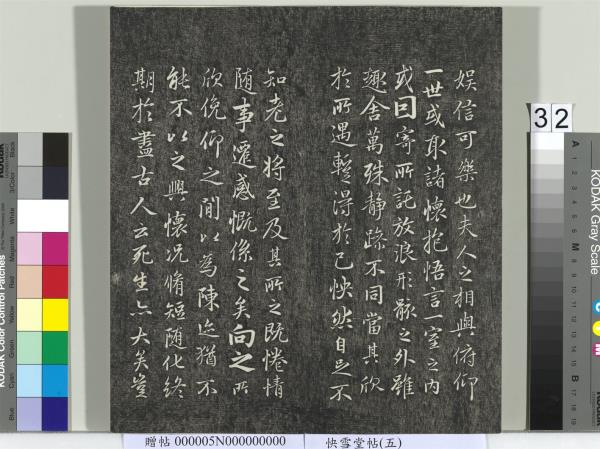 娛信可樂也夫人之相與俯仰
一世或取諸懷抱悟言一室之內
或因寄所託放浪形骸之外雖
趣舍萬殊靜躁不同當其欣
於所遇暫得於己怏然自足不
知老之將至及其所之既惓情
隨事遷感慨係之矣向之所
欣俛仰之閒以為陳迹猶不
能不以之興懷況脩短隨化終
期於盡古人云死生亦大矣豈
32
KODAK Color Control Patches
Blue
Cyan
Green
Yellow
Red
Magenta
White
3/Color
Black
KODAK Gray Scale
C
Y
M
A
1
2
3
4
5
6
M
8
9
10
11
12
13
14
15
B
17
18
19
贈帖 000005N000000000
快雪堂帖(五)